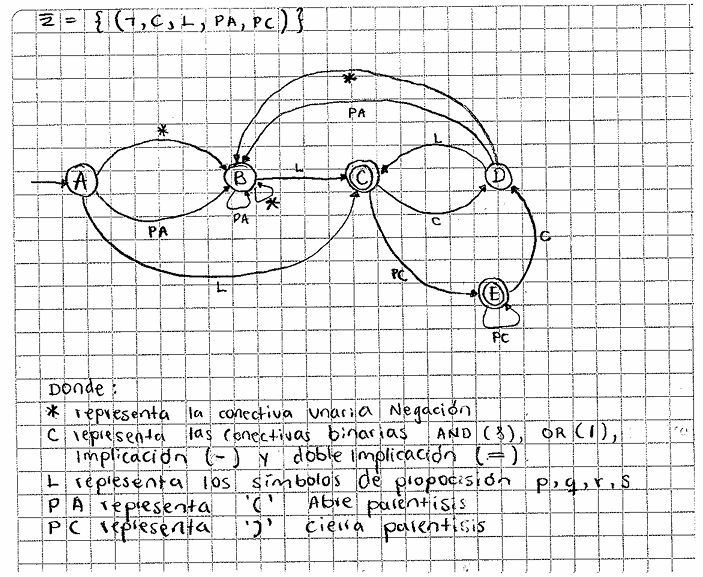 Σ = { (¬, C, L, PA, PC) }
*
PA
*
L
L
A
B
C
D
PA
*
C
PA
L
PC
E
C
PC
Donde:
* representa la conectiva unaria Negación
C representa las conectivas binarias AND (&), OR (|),
Implicación (-) y doble implicación (=)
L representa los símbolos de propocisión p,q,r,s
PA representa '(' Abre parentisis
PC representa ')' cierra parentisis